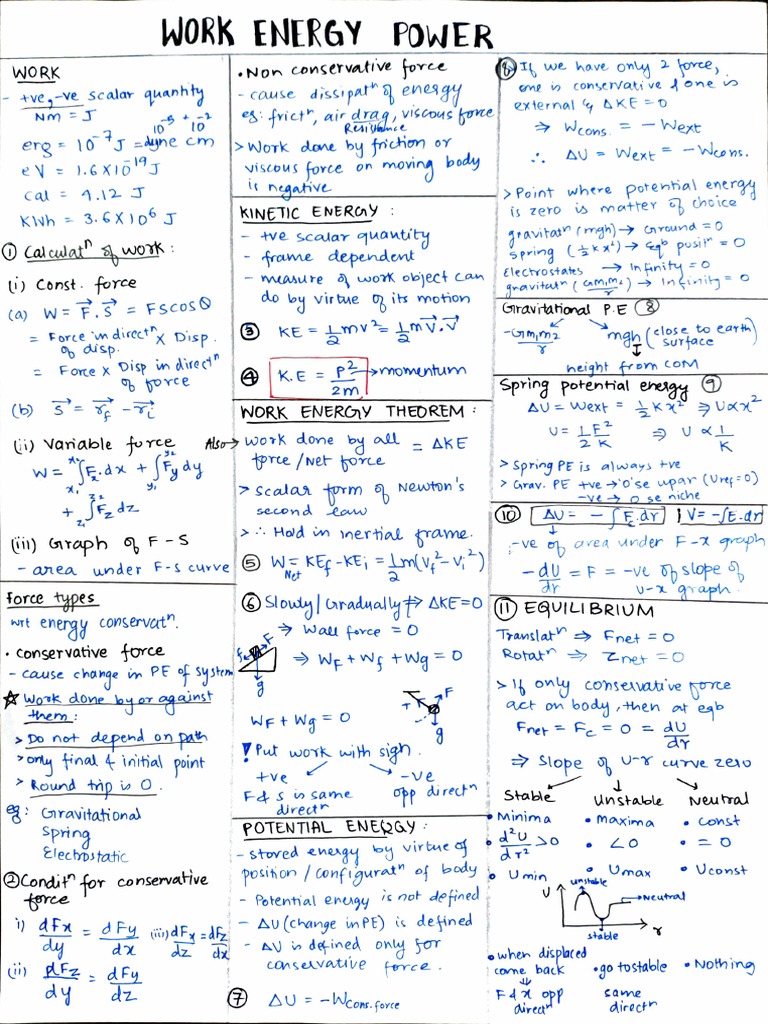 WORK ENERGY POWER
WORK
- +ve, -ve scalar quantity
Nm = J
erg = 10⁻⁷ J = dyne cm
10⁻⁵ + 10⁻²
eV = 1.6 X 10⁻¹⁹ J
cal = 4.12 J
KWh = 3.6 X 10⁶ J
① Calculatⁿ of work:
(i) Const. force
(a) W = F⃗.S⃗ = FSCOSθ
= Force in directⁿ of disp. X Disp.
= Force X Disp in directⁿ of force
(b) S⃗ = r⃗f - r⃗i
(ii) Variable force
W = x₁∫x₂ Fx.dx + y₁∫y₂ Fy dy
+ z₁∫z₂ Fz dz
(iii) Graph of F - S
- area under F-s curve
Force types
wrt energy conservatⁿ.
• conservative force
- cause change in PE of system
☆ Work done by or against
them:
> Do not depend on path
> only final & initial point
> Round trip is 0.
eg: Gravitational
Spring
Electrostatic
② Conditⁿ for conservative
force
i) dFx/dy = dFy/dx (iii) dFx/dz = dFz/dx
(ii) dFz/dy = dFy/dz
• Non conservative force
- cause dissipatⁿ of energy
eg: frictⁿ, air drag, viscous force
Resistance
> Work done by friction or
viscous force on moving body
is negative
KINETIC ENERGY :
- +ve scalar quantity
- frame dependent
- measure of work object can
do by virtue of its motion
③ KE = 1/2 mv² = 1/2 m v⃗.v⃗
④ K.E = P²/2m → momentum
WORK ENERGY THEOREM :
Also → work done by all
force / Net force = ΔKE
> scalar form of Newton's
second law
> ∴ Hold in inertial frame.
⑤ W Net = KEf - KEi = 1/2 m(Vf² - Vi²)
⑥ Slowly / Gradually ⇒ ΔKE = 0
⇒ Wall force = 0
F
g
⇒ WF + Wf + Wg = 0
WF + Wg = 0
T F
g
! Put work with sign.
+ve -ve
F & S is same
directⁿ
opp directⁿ
POTENTIAL ENERGY :
- stored energy by virtue of
position / configuratⁿ of body
- Potential energy is not defined
- ΔU (change in PE) is defined
- ΔU is defined only for
conservative force.
⑦ ΔU = -Wcons.force
⑧ If we have only 2 force,
one is conservative & one is
external & ΔKE = 0
⇒ Wcons. = - Wext
∴ ΔU = Wext = - Wcons.
> Point where potential energy
is zero is matter of choice
gravitatⁿ (mgh) → Ground = 0
spring (1/2 Kx²) → Eqb positⁿ = 0
Electrostates → Infinity = 0
gravitatⁿ (Gm₁m₂/r) → Infinity = 0
Gravitational P.E ⑧
-Gm₁m₂/r mgh (close to earth
surface
height from COM
Spring potential energy ⑨
ΔU = Wext = 1/2 Kx² ⇒ U ∝ x²
U = 1/2 F²/K ⇒ U ∝ 1/K
> Spring PE is always +ve
> Grav. PE +ve → 0 se upar (Uref = 0)
-ve → 0 se niche
⑩ ΔU = - ∫F.dr | V = -∫E.dr
-ve of area under F-x graph
-dU/dr = F = -ve of slope of
U-x graph.
⑪ EQUILIBRIUM
Translatⁿ ⇒ Fnet = 0
Rotatⁿ ⇒ τnet = 0
> If only conservative force
act on body, then at eqb
Fnet = Fc = 0 = dU/dr
⇒ Slope of U-r curve zero
Stable Unstable Neutral
• Minima • maxima • const
• d²U/dr² > 0 • < 0 • = 0
• Umin • Umax • Uconst
U unstable
→ Neutral
stable r
• when displaced
come back • go to stable • Nothing
F & x opp
directⁿ
same
directⁿ